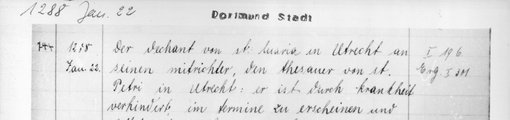 1288 Jan. 22
Dortmund Stadt
1288 Der dechant von st. Maria in Utrecht an I 196
Jan. 22. seinen mitrichter, den thesauer von st. Erg. I 301
Petri in Utrecht: er ist durch krankheit
verhindert, im termine zu erscheinen und